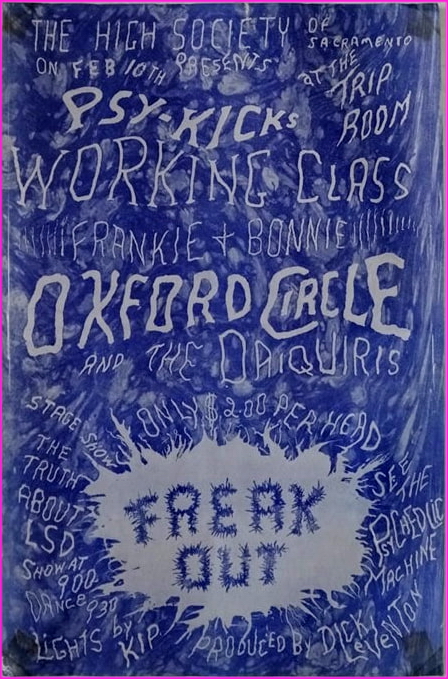 THE HIGH SOCIETY OF SACRAMENTO
ON FEB 10TH PRESENTS
AT THE TRIP ROOM
PSY-KICKS
WORKING CLASS
FRANKIE + BONNIE
OXFORD CIRCLE
AND THE DAIQUIRIS
ONLY $2.00 PER HEAD
STAGE SHOW
THE
TRUTH
ABOUT
LSD
SHOW AT
900
DANCE 930
FREAK
OUT
SEE
THE
PSYCHEDELIC
MACHINE
LIGHTS by KIP
PRODUCED BY DICK LEVENTON